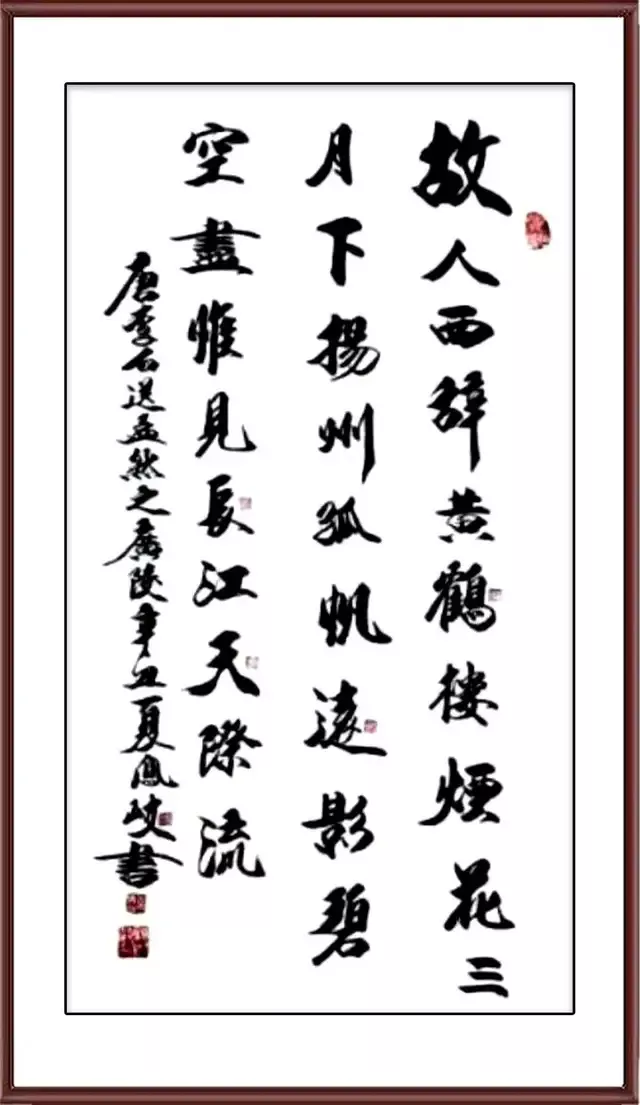 故人西辞黄鶴楼煙花三
月下揚州孤帆遠影碧
空盡惟見長江天際流
唐李白送孟然之廣陵辛丑夏鳳岐書